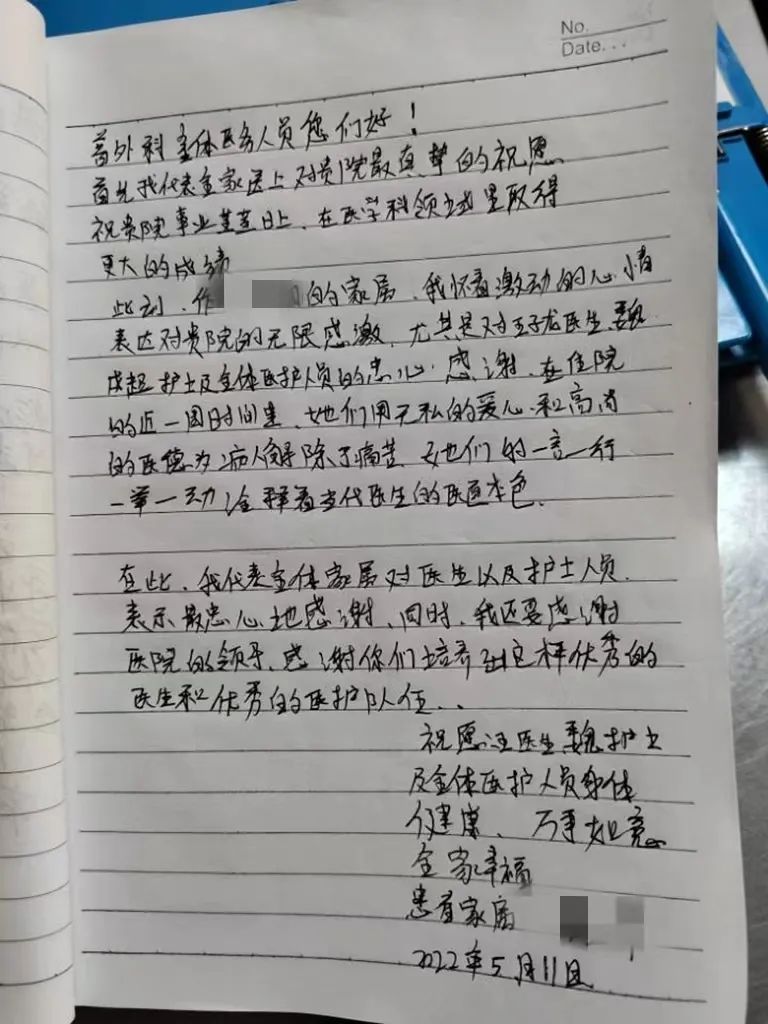 No.
Date...
普外科全体医务人员您们好！
首先我代表全家送上对贵院最真挚的祝愿
祝贵院事业蒸蒸日上、在医学科领域里取得
更大的成绩
此刻、作 的家属、我怀着激动的心情
表达对贵院的无限感激、尤其是对王子龙医生魏
成超护士及全体医护人员的忠心感谢、在住院
的近一周时间里、她他们用无私的爱心和高尚
的医德为病人解除了痛苦 她他们的一言一行
一举一动诠释着当代医生的医道本色、
在此、我代表全体家属对医生以及护士人员、
表示最忠心地感谢、同时、我还要感谢
医院的领导、感谢你们培养到这样优秀的
医生和优秀的医护队伍..
祝愿王医生魏护士
及全体医护人员身体
健康、万事如意
全家幸福
患者家属
2022年5月11日